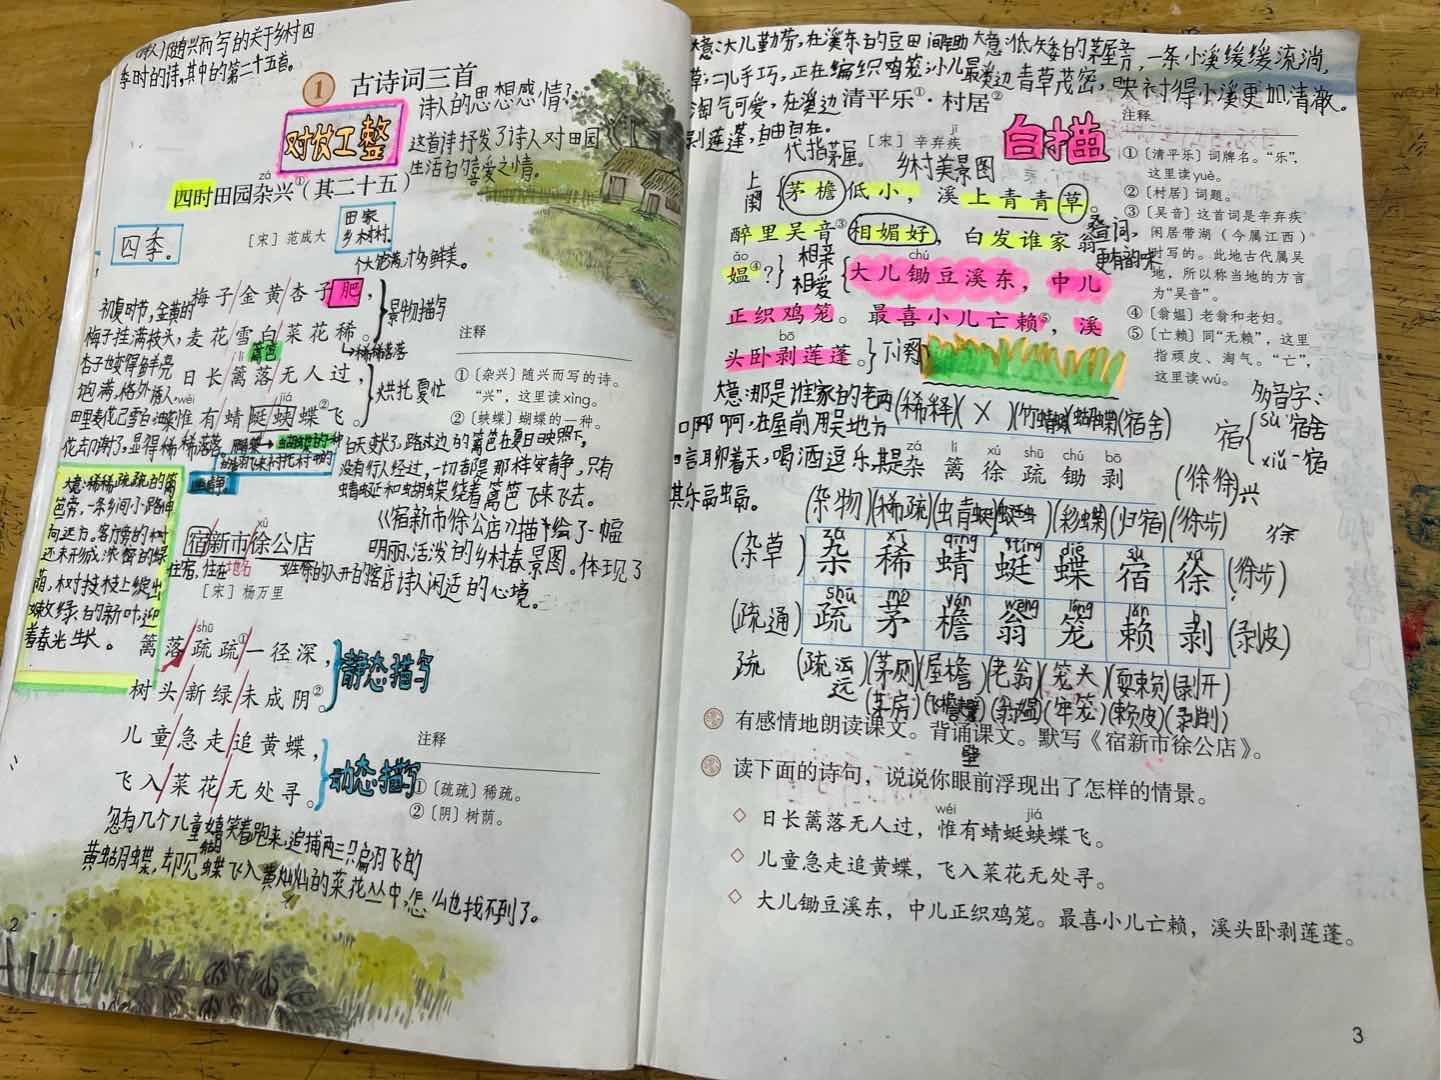 随兴而写的关于乡村四
季时的诗,其中的第二十五首。
1 古诗词三首
诗人的思想感情:
对仗工整
这首诗抒发了诗人对田园
生活的喜爱之情。
zá
四时田园杂兴①(其二十五)
四季。
[宋] 范成大
田家
乡村。
个大饱满,汁多鲜美。
梅子/金黄/杏子/肥,
景物描写
初夏时节,金黄的
梅子挂满枝头,
麦花/雪白/菜花稀。
稀稀落落
杏子也变得鲜亮
篱笆
饱满,格外诱人。
lí
日长/篱落/无人过,
烘托夏忙
wéi jiá
惟有/蜻蜓/蛱蝶②飞。
花去了谢了,显得稀稀落落。
白天变长了,路过边的篱笆在夏日映照下,
没有行人经过,一切都是那样安静,只有
蜻蜓和蝴蝶绕着篱笆飞来飞去。
注释
①〔杂兴〕随兴而写的诗。
“兴”,这里读xìng。
②〔蛱蝶〕蝴蝶的一种。
大意:稀稀疏疏的篱
笆旁,一条乡间小路伸
向远方。路旁的树
还未形成浓密的绿
荫,树对枝上绽出
嫩绿的新叶,迎
着春光生长。
《宿新市徐公店》描绘了一幅
明丽、活泼的乡村春景图。体现了
诗人闲适的心境。
xú
宿新市徐公店
住宿,住在
地名
姓徐的人开的客店
[宋] 杨万里
shū
篱落/疏疏①/一径深,
静态描写
树头/新绿/未成阴②。
儿童/急走/追黄蝶,
动态描写
飞入/菜花/无处寻。
注释
①〔疏疏〕稀疏。
②〔阴〕树荫。
忽有几个儿童嬉笑着跑来,追捕两三只扁羽飞的
黄蝴蝶,却见蝴蝶飞入黄灿灿的菜花丛中,怎么也找不到了。
2
大意:大儿勤劳,在溪东的豆田间锄
草;二儿手巧,正在编织鸡笼;小儿最
淘气可爱,在溪边
剥莲蓬,自由自在。
大意:低矮的茅屋旁,一条小溪缓缓流淌,
溪边青草茂密,映衬得小溪更加清澈。
清平乐①·村居②
jí
[宋] 辛弃疾
代指茅屋。
乡村美景图
白描
上阕
茅檐低小,溪上青青草。
醉里吴音③相媚好,白发谁家翁
叠词,
更有韵味
相亲
相爱
ǎo
媪④?
chú
大儿锄豆溪东,中儿
正织鸡笼。最喜小儿亡赖⑤,溪
bō
头卧剥莲蓬。
下阕
注释
①〔清平乐〕词牌名。“乐”,
这里读yuè。
②〔村居〕词题。
③〔吴音〕这首词是辛弃疾
闲居带湖(今属江西)
时写的。此地古代属吴
地,所以称当地的方言
为“吴音”。
④〔翁媪〕老翁和老妇。
⑤〔亡赖〕同“无赖”,这里
指顽皮、淘气。“亡”,
这里读wú。
大意:那是谁家的老两
口啊,在屋前用吴地方
言聊着天,喝酒逗乐,
其乐融融。
多音字:
宿
sù 宿舍
xiǔ 一宿
(稀释)(X)(竹蜻蜓)(蝴蝶)(宿舍)
zá lí xú shū chú bō
杂 篱 徐 疏 锄 剥
(徐徐)
兴
徐
(杂物)(稀疏)(蜻蜓)(蜓)(彩蝶)(归宿)(徐步)
zá xī qīng tíng dié sù xú
(杂草)杂 稀 蜻 蜓 蝶 宿 徐(徐步)
shū máo yán wēng lóng lài bō
(疏通)疏 茅 檐 翁 笼 赖 剥(剥皮)
疏
(疏远)(茅厕)(屋檐)(老翁)(笼头)(耍赖)(剥开)
远
(茅房)(飞檐走壁)(翁媪)(牢笼)(赖皮)(剥削)
壁
有感情地朗读课文。背诵课文。默写《宿新市徐公店》。
读下面的诗句,说说你眼前浮现出了怎样的情景。
wéi jiá
◇ 日长篱落无人过,惟有蜻蜓蛱蝶飞。
◇ 儿童急走追黄蝶,飞入菜花无处寻。
◇ 大儿锄豆溪东,中儿正织鸡笼。最喜小儿亡赖,溪头卧剥莲蓬。
3